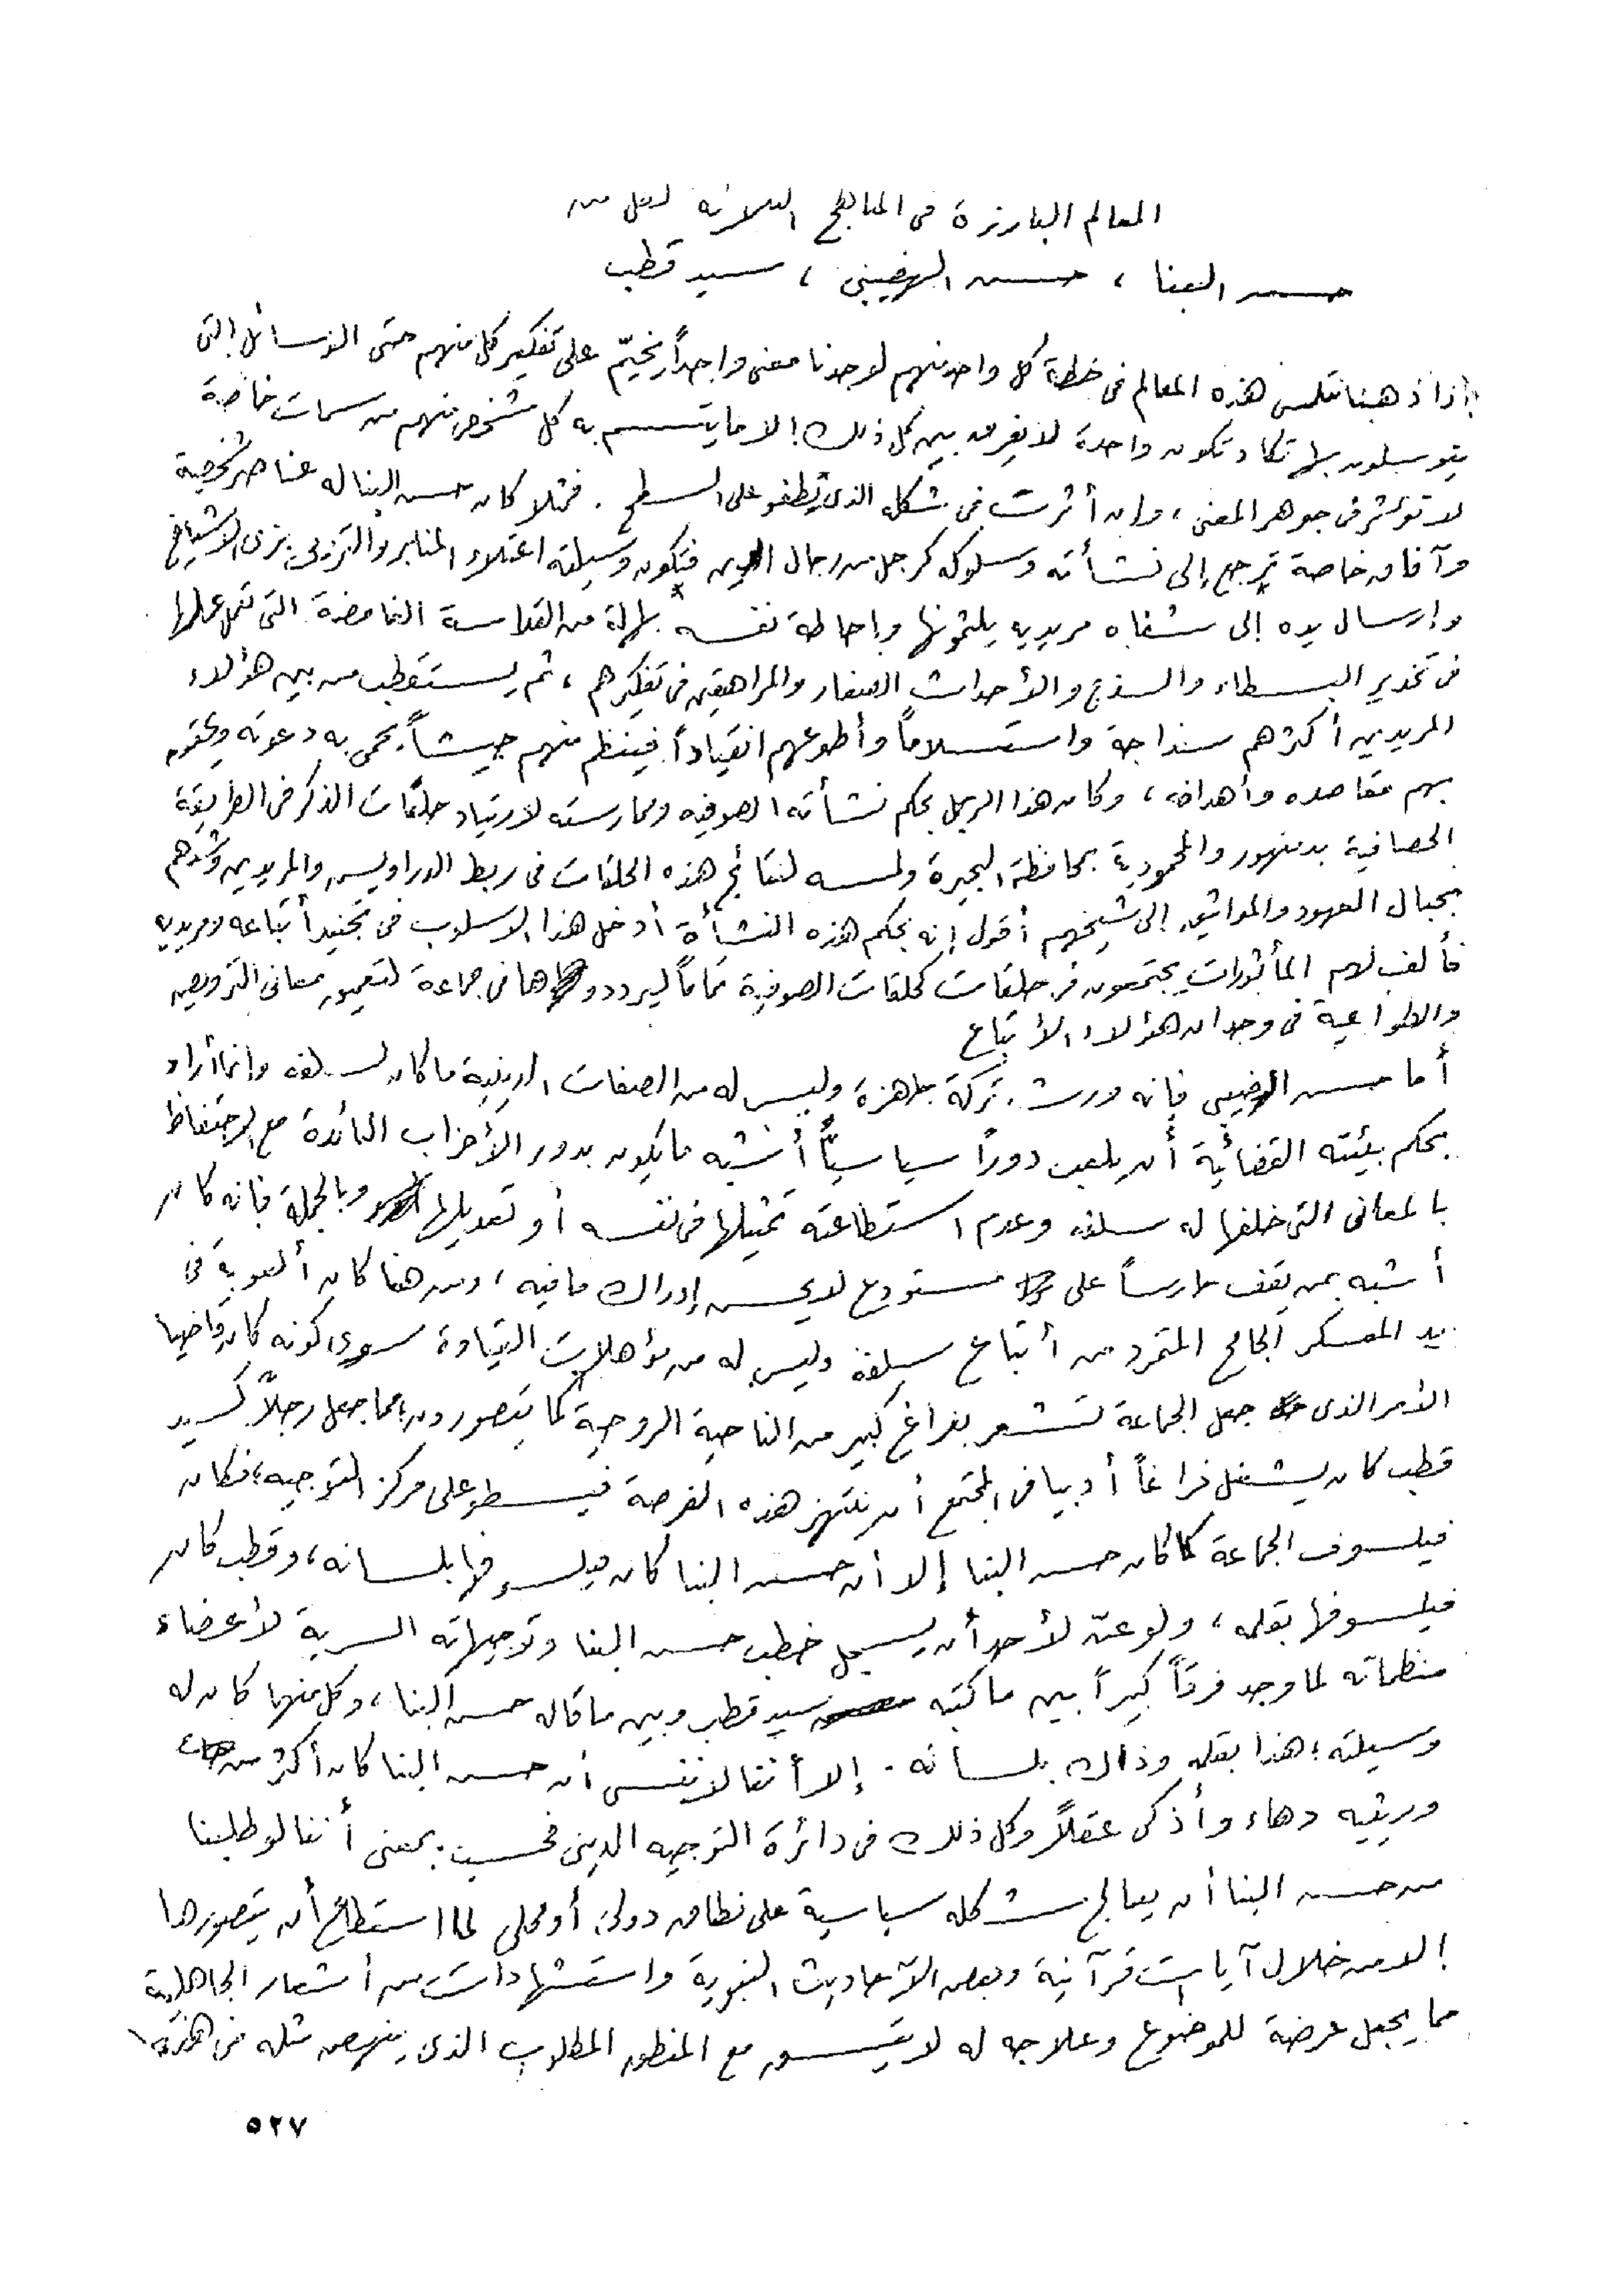 المعالم البارزة فى المناهج الثلاثة لكل من
حسن البنا ، حسن الهضيبى ، سيد قطب
إذا ذهبنا نتلمس هذه المعالم فى خطة كل واحد منهم لوجدنا معنى واحداً يخيّم على تفكير كل منهم حتى الوسائل التى
يتوسلون بها تكاد تكون واحدة لا يفرق بين كل ذلك إلا ما يتسم به كل شخص منهم من سمات خاصة
لا تؤثر فى جوهر المعنى ، وإن أثرت فى شكله الذى يطفو على السطح . فمثلا كان حسن البنا له عناصر شخصية
وآفاق خاصة ترجع إلى نشأته وسلوكه كرجل من رجال الدين فتكون وسيلته اعتلاء المنابر والتزيى بزى الأشياخ
وإرسال يده إلى شفاه مريديه يلثمونها وإحاطة نفسه بهالة من القداسة الغامضة التى تعمل عملها
فى تخدير البسطاء والسذج والأحداث الصغار والمراهقين فى تفكيرهم ، ثم يستقطب من بين هؤلاء
المريدين أكثرهم سذاجة واستسلاماً وأطوعهم انقياداً فينظم منهم جيشاً يحمى به دعوته ويحقق
بهم مقاصده وأهدافه ، وكان هذا الرجل بحكم نشأته الصوفيه وممارسته لارتياد حلقات الذكر فى الطريقة
الحصافية بدمنهور والمحمودية بمحافظة البحيرة ولمسه لنتائج هذه الحلقات فى ربط الدراويش والمريدين وشدهم
بحبال العهود والمواثيق إلى شيخهم أقول إنه بحكم هذه النشأة أدخل هذا الاسلوب فى تجنيد أتباعه ومريديه
فألف لهم المأثورات يجتمعون فى حلقات كحلقات الصوفية تماماً ليرددوها فى جماعة لتعميق معانى الترويض
والطواعية فى وجدان هؤلاء الأتباع
أما حسن الهضيبى فإنه ورث تركة جاهزة وليس له من الصفات الدينية ما كان لسلفه وإنما أراد
بحكم بيئته القضائية أن يلعب دوراً سياسياً أشبه ما يكون بدور الأحزاب البائدة مع الاحتفاظ
بالمعانى التى خلفها له سلفه وعدم استطاعته تمثيلها فى نفسه أو تعديلها وبالجملة فإنه كان
أشبه بمن يقف حارساً على مستودع لا يحسن إدراك ما فيه ، ومن هنا كان ألعوبة فى
يد المعسكر الجامح المتمرد من أتباع سلفه وليس له من مؤهلات القيادة سوى كونه كان قاضيا
الأمر الذى جعل الجماعة تشعر بفراغ كبير من الناحية الروحية كما يتصورون مما جعل رجلاً كسيد
قطب كان يشغل فراغاً أدبيا فى المجتمع أن ينتهز هذه الفرصة فيسطو على مركز التوجيه ، فكان
فيلسوف الجماعة كما كان حسن البنا إلا أن حسن البنا كان فيلسوفها بلسانه ، وقطب كان
فيلسوفها بقلمه ، ولو عنّ لأحد أن يسجل خطب حسن البنا وتوجيهاته السرية لأعضاء
منظماته لما وجد فرقاً كبيراً بين ما كتبه سيد قطب وبين ما قاله حسن البنا ، وكل منهما كان له
وسيلته ؛ هذا بقلمه وذاك بلسانه . إلا أننا لا ننسى أن حسن البنا كان أكثر من
وريثيه دهاء وأذكى عقلاً وكل ذلك فى دائرة التوجيه الدينى فحسب بمعنى أننا لو طلبنا
من حسن البنا أن يعالج مشكله سياسية على نطاق دولى أو محلى لما استطاع أن يتصورها
إلا من خلال آيات قرآنية وبعض الأحاديث النبوية واستشهادات من أشعار الجاهلية
مما يجعل عرضة للموضوع وعلاجه له لا يتسق مع المنظور المطلوب الذى ينهض مثله فى هذه
٥٢٧